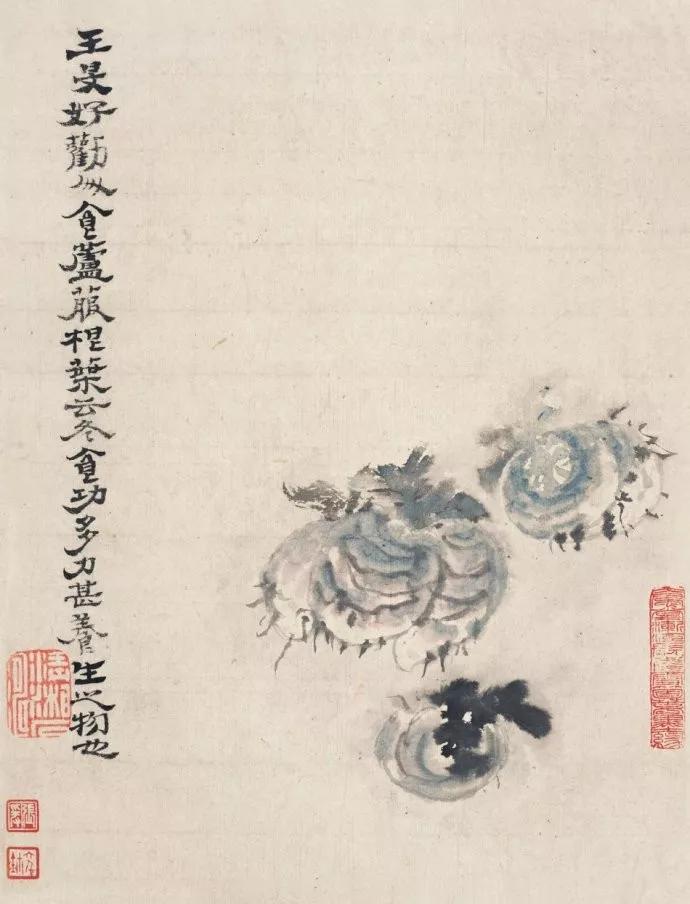 王旻好勸人食蘆菔根葉云冬食功多力甚養生之物也